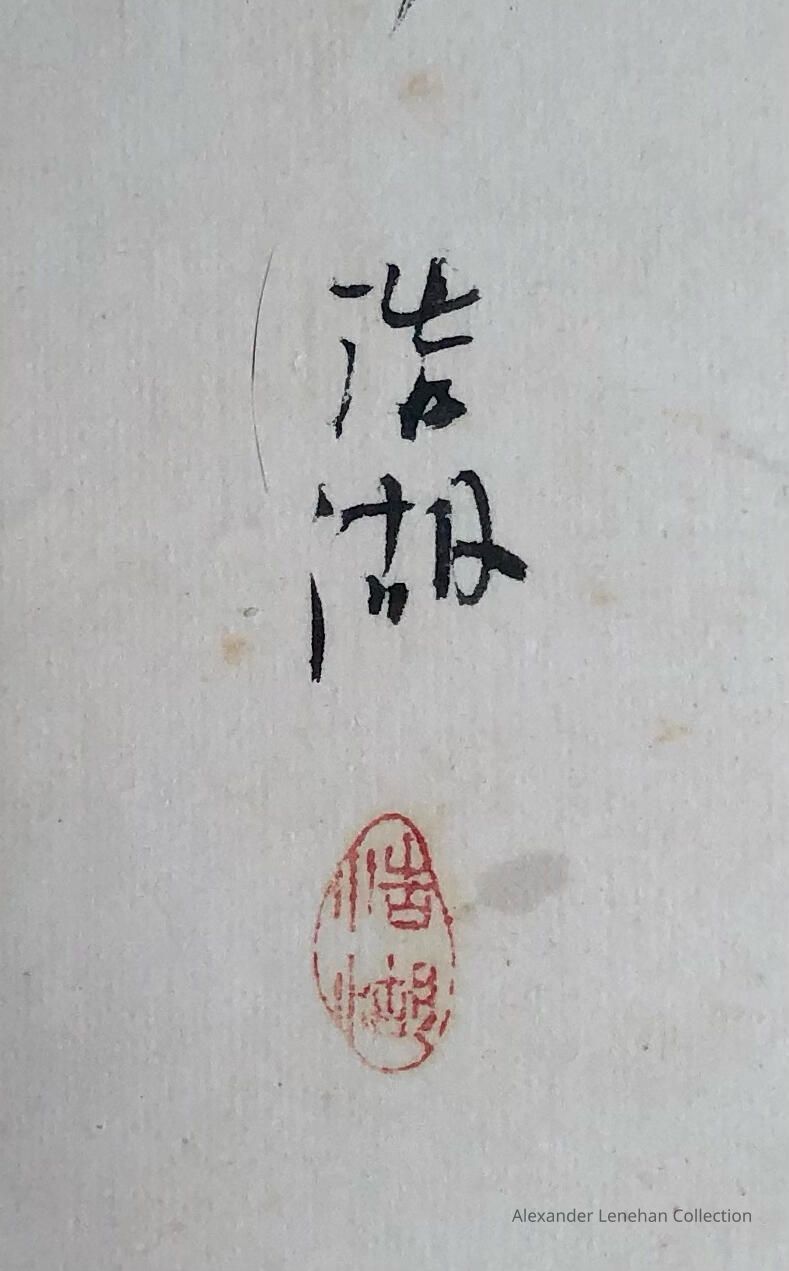 浩湖
浩湖
Alexander Lenehan Collection